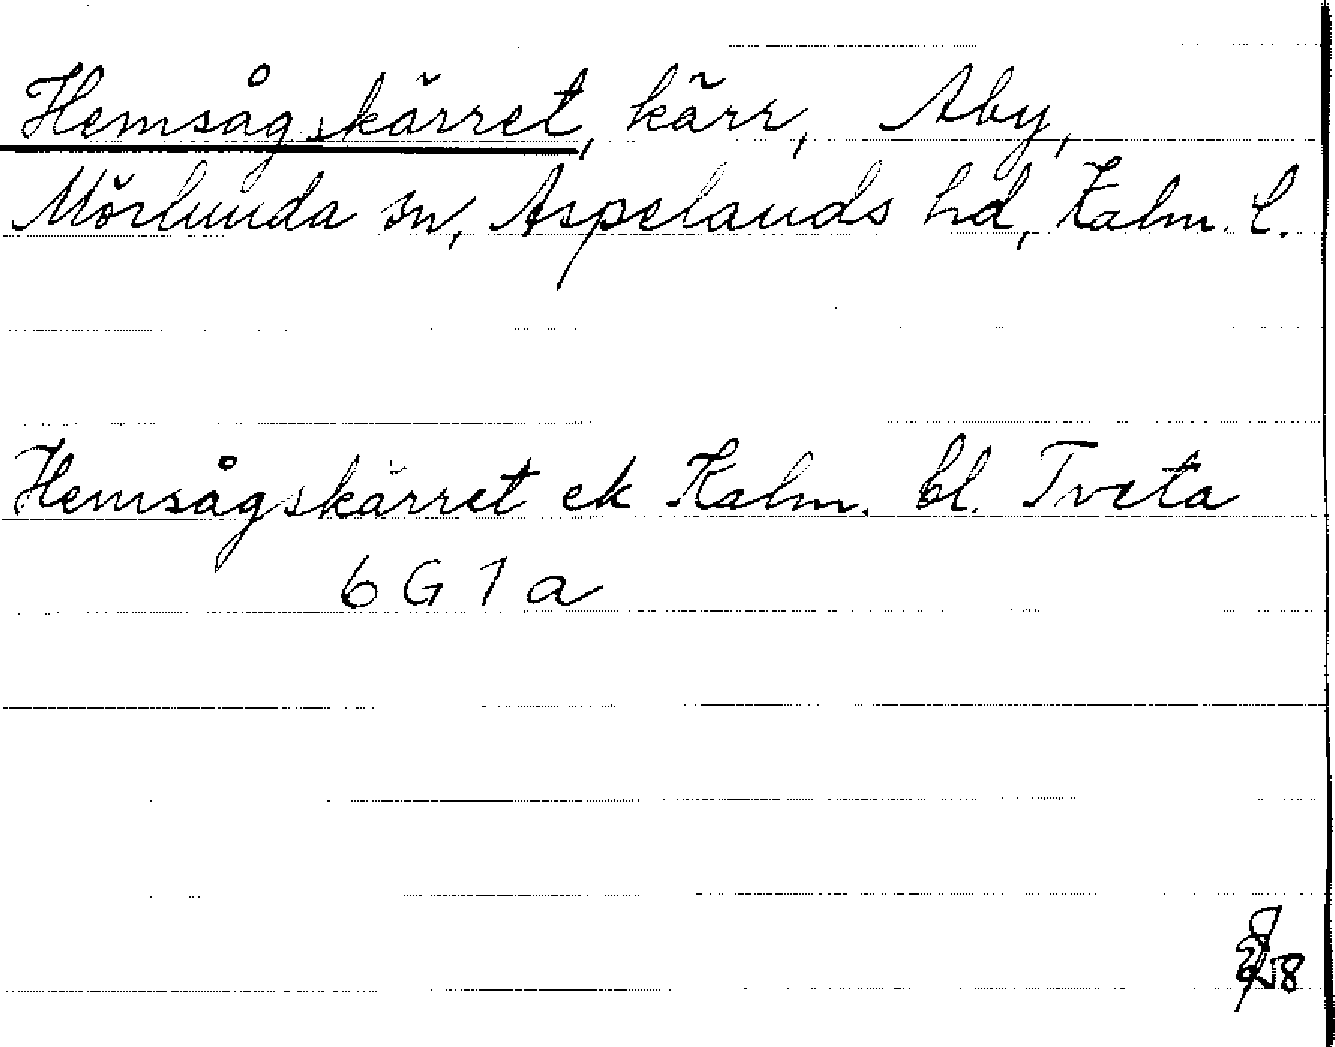 Hemsågskärret, kärr, Aby,
Mörlunda sn, Aspelands hd, Kalm. l.
Hemsågskärret ek Kalm. bl. Tveta
6 G 1 a